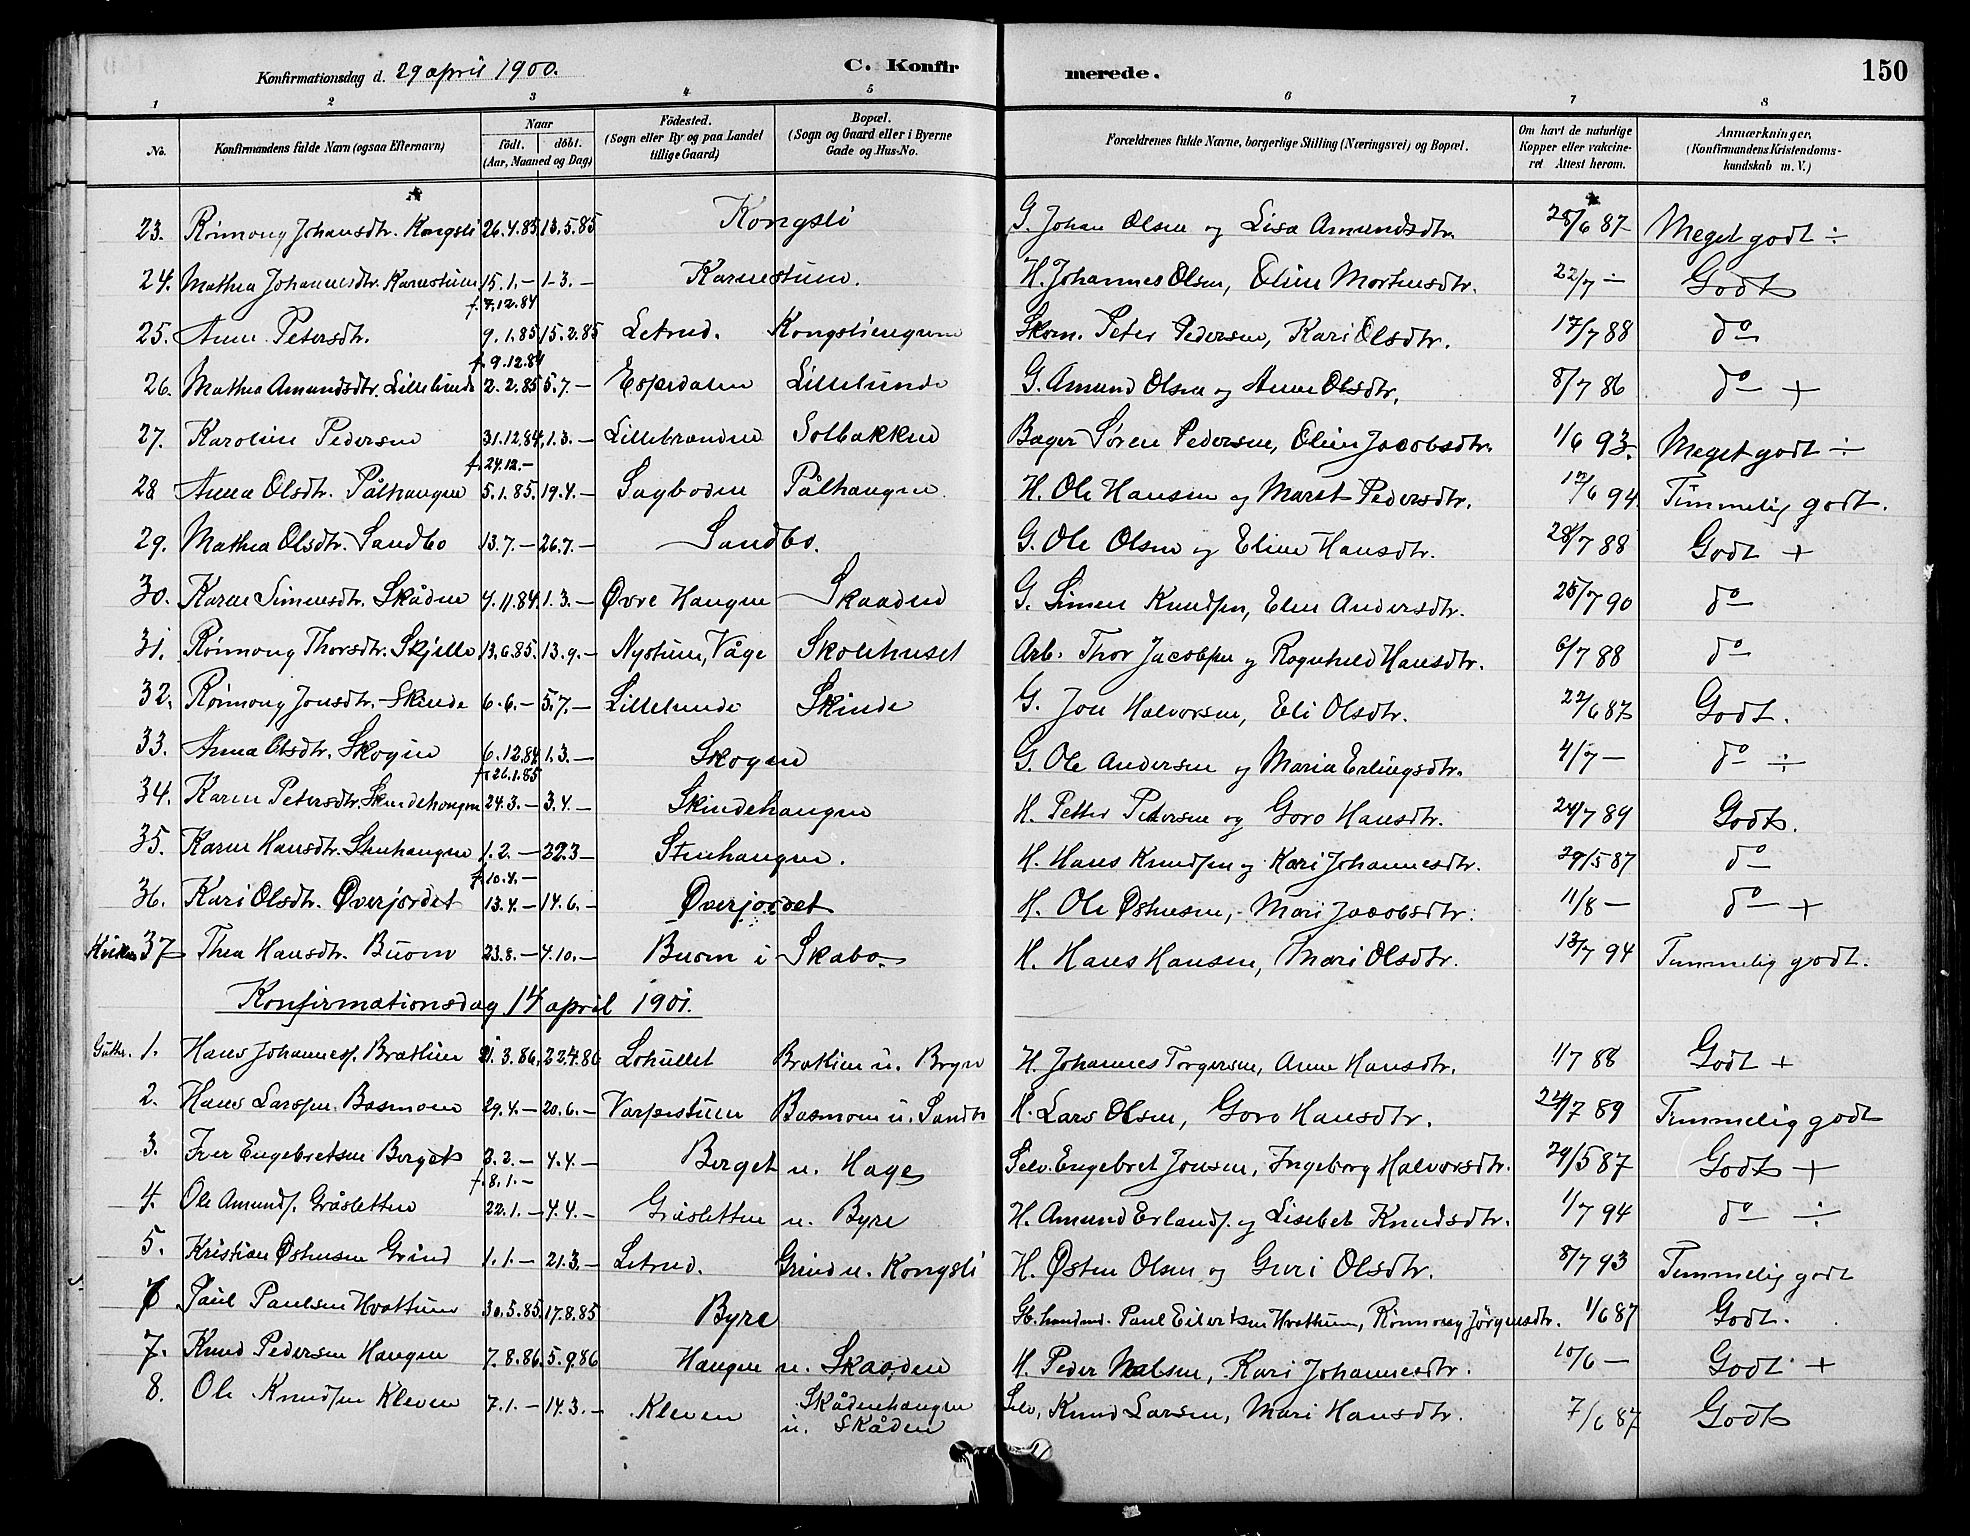 Konfirmationsdag d. 29 april 1900. C. Konfirmerede. 150
1 2 3 4 5 6 7 8
No. Konfirmandens fulde Navn (ogsaa Efternavn) Naar födt. döbt. (Aar, Maaned og Dag) Födested. (Sogn eller By og paa Landet tillige Gaard) Bopæl. (Sogn og Gaard eller i Byerne Gade og Hus-No. Forældrenes fulde Navne, borgerlige Stilling (Næringsvei) og Bopæl. Om havt de naturlige Kopper eller vakcineret Attest herom. Anmærkninger, (Konfirmandens Kristendomskundskab m. V.)
23. Rönnoug Johansdtr. Kongsli 26.4.85 13.5.85 Kongsli G. Johan Olsen og Lisa Amundsdtr. 28/6 87 Meget godt ÷
24. Mathea Johannesdtr. Karnstuen 15.1.— 1.3.— Karnestuen. H. Johannes Olsen, Eline Mortensdtr. 22/7 — Godt
f. 7.12.84
25. Anne Petersdtr. 9.1.85 15.2.85 Letrud. Kongsliengven Skom. Peter Pedersen, Kari Olsdtr. 17/7 88 do
f. 9.12.84
26. Mathea Amundsdtr. Lillelunde 2.2.85 5.7.— Espedalen Lillelunde G. Amund Olsen og Anne Olsdtr. 8/7 86 do +
27. Karoline Pedersen 31.12.84 1.3.— Lillebrænden Solbakken Bager Søren Pedersen, Oline Jacobsdtr. 1/6 93. Meget godt ÷
f. 24.12.—
28 Anna Olsdtr. Pålhaugen 5.1.85. 19.4.— Sagboden Pålhaugen. H. Ole Hansen og Marit Pedersdtr. 17/6 94 Temmelig godt.
29. Mathea Olsdtr. Sandbo 13.7.— 26.7.— Sandbo. G. Ole Olsen og Eline Hansdtr. 28/7 88 Godt +
30. Karen Simensdtr. Skåden 4.11.84. 1.3.— Øvre Haugen Skaaden G. Simen Knudsen, Elen Andersdtr. 25/7 90 do
31. Rönnoug Thorsdtr. Skjelle 13.6.85. 13.9.— Nystuen, Våge Skolehuset Arb. Thor Jacobsen og Ragnhild Hansdtr. 6/7 88 do
32. Rönnoug Jonsdtr. Skinde 6.6.— 5.7.— Lillelunde Skinde G. Jon Halvorsen, Eli Olsdtr. 22/6 87 Godt.
33. Anna Olsdtr. Skogen 6.12.84 1.3.— Skogen G. Ole Andersen og Maria Erlingsdtr. 4/7 — do ÷
f. 26.1.85
34. Karen Petersdtr. Skindehaugen 24.3.— 3.4.— Skindehaugen H. Petter Pedersen og Goro Hansdtr. 24/7 89 Godt.
35. Karen Hansdtr. Stenhaugen 1.2.— 29.3— Stenhaugen. H. Hans Knudsen og Kari Johannesdtr. 29/5 87 do
f. 10.4.—
36. Kari Olsdtr. Øverjordet 13.4.— 14.6.— Øverjordet H. Ole Østensen, Mari Jacobsdtr. 11/8 — do +
37 Thea Hansdtr. Buom 23.8.— 4.10.— Buom i Skabo. H. Hans Hansen, Mari Olsdtr. 13/7 94 Temmelig godt.
Konfirmationsdag 14 april 1901.
Gutter. 1. Hans Johannes. Brætlien 21.3.86. 22.4.86 Lohullet Brætlien u. Bryn H. Johannes Torgersen, Anne Hansdtr. 1/7 88 Godt +
2. Hans Larsen Basmoen 29.4.— 20.6.— Varpestuen Basmoen u. Sandbo H. Lars Olsen, Goro Hansdtr. 24/7 89 Temmelig godt
3. Iver Engebretsen Berget 2.2.— 4.4.— Berget u. Hage Selv. Engebret Jonsen, Ingeborg Halvorsdtr. 29/5 87 Godt +
f. 8.1.—
4. Ole Amunds. Gråsletten 22.1.— 4.4.— Gråsletten u. Byre H. Amund Erlands. og Lisebet Knudsdtr. 1/7 94 do ÷
5. Kristian Østensen Grind 1.1.— 21.3.— Letrud. Grind u. Kongsli H. Østen Olsen og Guri Olsdtr. 8/7 93 Temmelig godt
6 Paul Paulsen Hvattum 30.5.85. 17.8.85 Byre Paul Eilertsen Hvattum, Rönnoug Jörgensdtr. 1/6 87 Godt.
7. Knud Pedersen Haugen 7.8.86. 5.9.86 Haugen u. Skaaden H. Peder Nelsen, Kari Johannesdtr. 10/6 — Godt +
8. Ole Knudsen Kleven 7.1.— 14.3.— Kleven Skådenhaugen u. Skåden Selv. Knud Larsen, Mari Hansdtr. 7/6 87 Godt